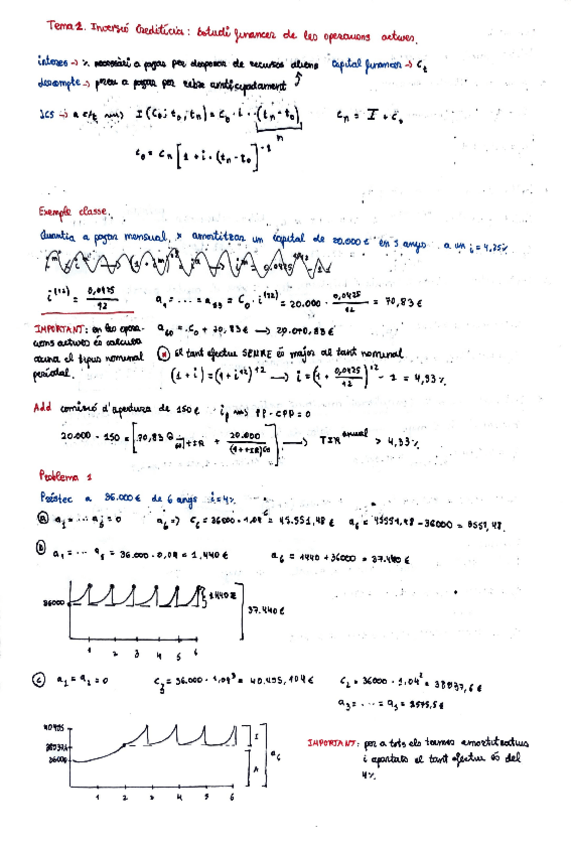 Tema 2. Inversió Creditícia: Estudi financer de les operacions actives.
interes → % necessari a pagar per disposar de recursos aliens Capital financer → Ct
descompte → preu a pagar per rebre anticipadament
I(C0; t0; tn) = C0 · i · (tn - t0) Cn = I + C0
n
C0 = Cn [1 + i · (tn - t0)]^-1
Exemple classe.
Quantia a pagar mensual, x amortitzar un capital de 20.000€ en 5 anys a un i = 4,25%
i^(12) = 0,0425/12 a1 = ... = a59 = C0 · i^(12) = 20.000 · 0,0425/12 = 70,83€
IMPORTANT: en les opera- a60 = C0 + 70,83€ → 20.070,83€
cions actives es calcula
el tipus nominal
periodal.
El tant efectiu SEMPRE és major al tant nominal
(1 + i) = (1 + i^12)^12 → i = (1 + 0,0425/12)^12 - 1 = 4,33%
Add comissió d'apertura de 150€ PP - CPP = 0
20.000 - 150 = [70,83 a 60|TIR + 20.000/(1+TIR)^60] → TIR anual > 4,33%
Problema 1
Préstec a 36.000€ de 6 anys i=4%
a) a1 = ... a5 = 0 a6 => C6 = 36000 · 1,04^6 = 45.551,48€ a6 = 45551,48 - 36000 = 9551,48.
b) a1 = ... a5 = 36.000 · 0,04 = 1.440€ a6 = 1440 + 36000 = 37.440€
36000
1440€
37.440€
1 2 3 4 5 6
c) a1 = a2 = 0 C3 = 36.000 · 1,04^3 = 40.495,104€ C2 = 36000 · 1,04^2 = 38937,6€
a3 = ... = a5 =
40495
36000
I
A
a6
1 2 3 4 5 6
IMPORTANT: per a tots els termes amortitzatius
i apartats el tant efectiu és del
4%.